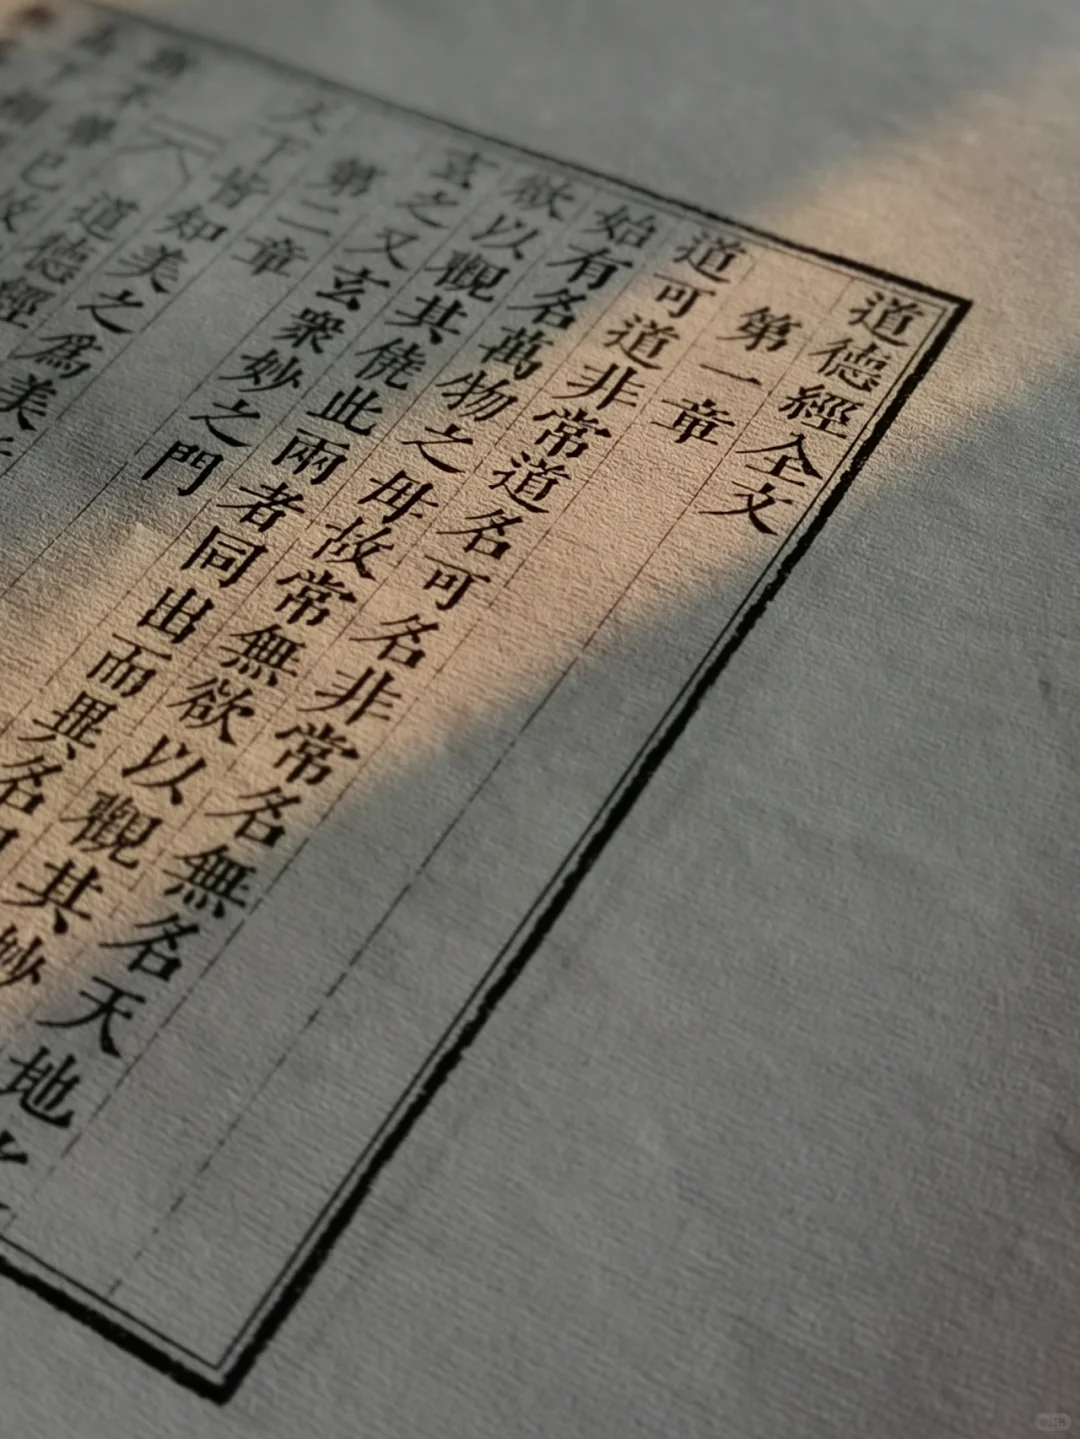 道德經全文
第一章
道可道非常道名可名非常名無名天地
始有名萬物之毋故常無欲以觀其妙
欲以觀其侥此兩者同出而異名
玄之又玄衆妙之門
第二章
天下皆知美之爲美
道德經
已故